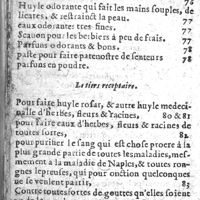 Huyle odorante qui fait les mains souples, de-
licates, & restrainct la peau. 77
eaux odorantes tres fines. 77
Sauon pour les berbiers à peu de frais. 77
Parfuns odorants & bons. 78
paste pour faire patenostre de senteurs 78
parfuns en poudre.
Le tiers receptaire.
Pour faire huyle rosat, & autre huyle medeci-
nalle d'herbes, fleurs & racines, 80 & 81
pour faire eaux d'herbes, fleurs & racines de
toutes sortes, 82
pour purifier le sang qui est chose propre à la
plus grande partie de toutes les maladies, mes-
mement à la maladie de Naples, & toutes ron-
gnes lepreuses, qui pour onction quelconques
ne se veulent partir, 83
Contre toutes sortes de gouttes qu'elles soient